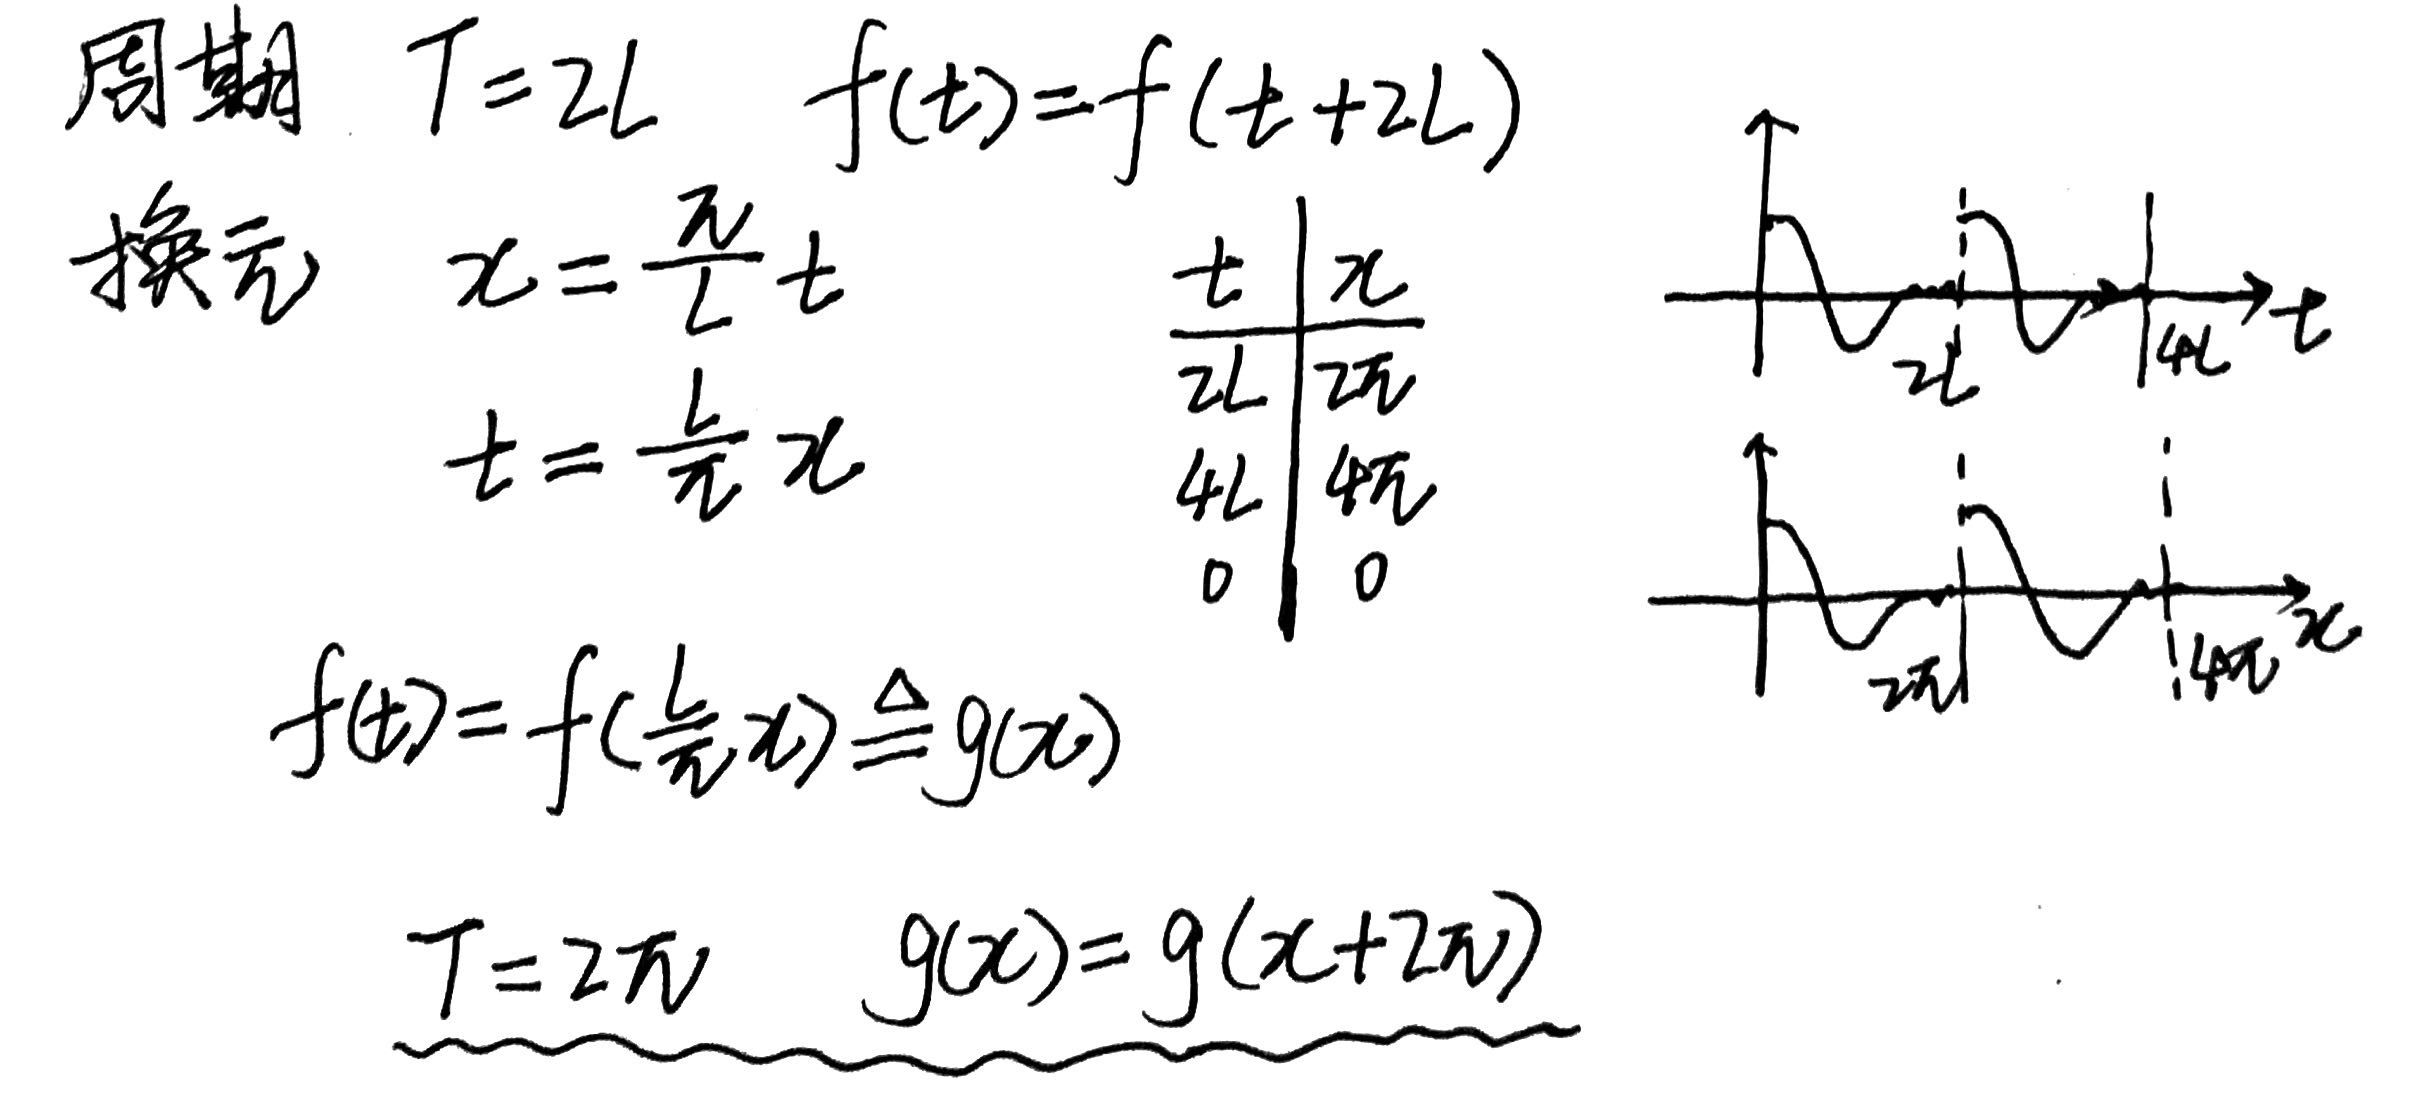 周期 T=2L f(t)=f(t+2L)
换元 x=π/L t
t=L/π x
t x
2L 2π
4L 4π
0 0
2L 4L t
2π 4π x
f(t)=f(L/π x)≜g(x)
T=2π g(x)=g(x+2π)